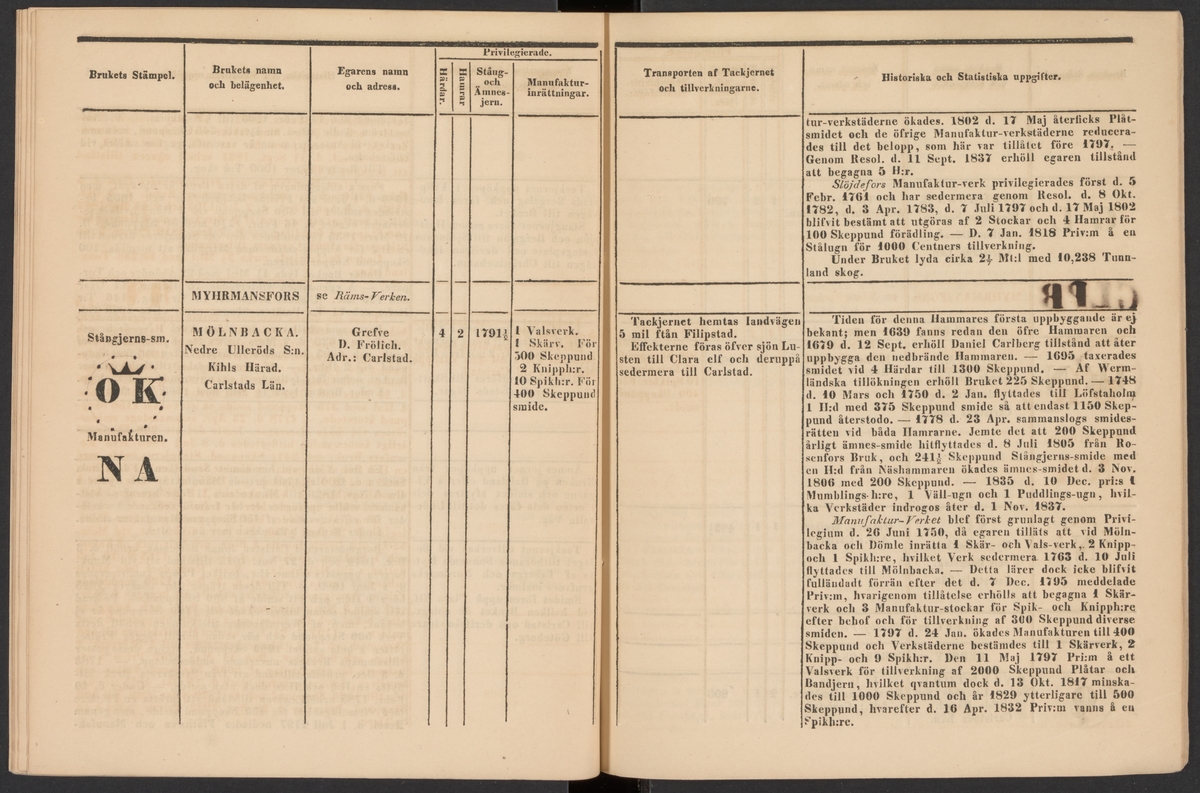 Privilegierade.
Brukets Stämpel.
Brukets namn
och belägenhet.
Egarens namn
och adress.
Härdar.
Hamrar
Stång-
och
Ämnes-
jern.
Manufaktur-
inrättningar.
MYHRMANSFORS
se Räms-Verken.
Stångjerns-sm.
O K
Manufakturen.
N A
MÖLNBACKA.
Nedre Ulleröds S:n.
Kihls Härad.
Carlstads Län.
Grefve
D. Frölich.
Adr.: Carlstad.
4
2
1 Valsverk.
1 Skärv. För
500 Skeppund
2 Knipph:r.
10 Spikh:r. För
400 Skeppund
smide.
Transporten af Tackjernet
och tillverkningarne.
Historiska och Statistiska uppgifter.
Tackjernet hemtas landvägen
5 mil ftån Filipstad.
Effekterne föras öfver sjön Lu-
sten till Clara elf och deruppå
sedermera till Carlstad.
tur-verkstäderne ökades. 1802 d. 17 Maj återficks Plåt-
smidet och de öfrige Manufaktur-verkstäderne reducera-
des till det belopp, som här var tillåtet före 1797. —
Genom Resol. d. 11 Sept. 1837 erhöll egaren tillstånd
att begagna 5 H:r.
Slöjdefors Manufaktur-verk privilegierades först d. 5
Febr. 1761 och har sedermera genom Resol. d. 8 Okt.
1782, d. 3 Apr. 1783, d. 7 Juli 1797 och d. 17 Maj 1802
blifvit bestämt att utgöras af 2 Stockar och 4 Hamrar för
100 Skeppund förädling. — D. 7 Jan. 1818 Priv:m å en
Stålugn för 1000 Centners tillverkning.
Under Bruket lyda cirka 2½ Mt:l med 10,238 Tunn-
land skog.
Tiden för denna Hammares första uppbyggande är ej
bekant; men 1639 fanns redan den öfre Hammaren och
1679 d. 12 Sept. erhöll Daniel Carlberg tillstånd att åter
uppbygga den nedbrände Hammaren. — 1695 taxerades
smidet vid 4 Härdar till 1300 Skeppund. — Af Werm-
ländska tillökningen erhöll Bruket 225 Skeppund. — 1748
d. 10 Mars och 1750 d. 2 Jan. flyttades till Löfstaholm
1 H:d med 375 Skeppund smide så att endast 1150 Skep-
pund återstodo. — 1778 d. 23 Apr. sammanslogs smides-
rätten vid båda Hamrarne. Jemte det att 200 Skeppund
årligt ämnes-smide hitflyttades d. 8 Juli 1805 från Ro-
senfors Bruk, och Skeppund Stångjerns-smide med
en H:d från Näshammaren ökades ämnes-smidet d. 3 Nov.
1806 med 200 Skeppund. — 1835 d. 10 Dec. pri:s 1
Mumblings-h:re, 1 Väll-ugn och 1 Puddlings-ugn, hvil-
ka Verkstäder indrogos åter d. 1 Nov. 1837.
Manufaktur-Verket blef först grunlagt genom Privi-
legium d. 26 Juni 1750, då egaren tilläts att vid Möln-
backa och Dömle inrätta 1 Skär- och Vals-verk, 2 Knipp-
och 1 Spikh:re, hvilket Verk sedermera 1763 d. 10 Juli
flyttades till Mölnbacka. — Detta lärer dock icke blifvit
fulländadt förrän efter det d. 7 Dec. 1795 meddelade
Priv:m, hvarigenom tillåtelse erhölls att begagna 1 Skär-
verk och 3 Manufaktur-stockar för Spik- och Knipph:re
efter behof och för tillverkning af 360 Skeppund diverse
smiden. — 1797 d. 24 Jan. ökades Manufakturen till 400
Skeppund och Verkstäderne bestämdes till 1 Skärverk, 2
Knipp- och 9 Spikh:r. Den 11 Maj 1797 Pri:m å ett
Valsverk för tillverkning af 2000 Skeppund Plåtar och
Bandjern, hvilket qvantum dock d. 13 Okt. 1817 minska-
des till 1000 Skeppund och år 1829 ytterligare till 500
Skeppund, hvarefter d. 16 Apr. 1832 Priv:m vanns å en
Spikh:re.